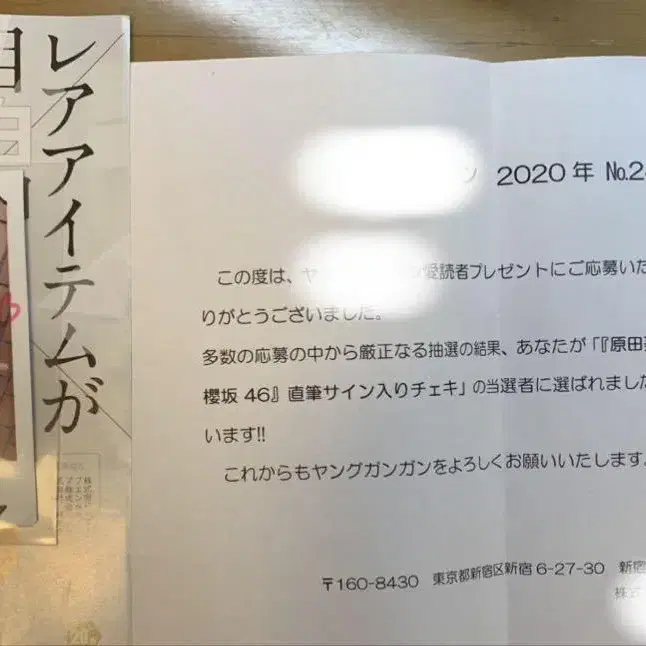 レアアイテムが
2020年 No.2
この度は、ヤ 愛読者プレゼントにご応募いた
りがとうございました。
多数の応募の中から厳正なる抽選の結果、あなたが「『原田
櫻坂 46』直筆サイン入りチェキ」の当選者に選ばれました
います!!
これからもヤングガンガンをよろしくお願いいたします。
〒160-8430 東京都新宿区新宿 6-27-30 新宿
株式